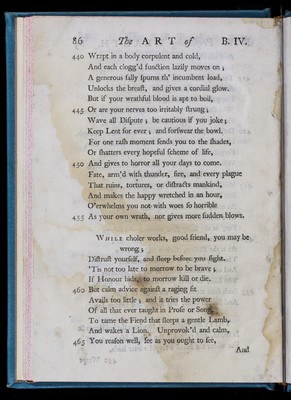 86 The ART of B. IV.
440 Wrapt in a body corpulent and cold,
And each clogg'd function lazily moves on;
A generous sally spurns th' incumbent load,
Unlocks the breast, and gives a cordial glow.
But if your wrathful blood is apt to boil,
445 Or are your nerves too irritably strung;
Wave all Dispute; be cautious if you joke;
Keep Lent for ever; and forswear the bowl.
For one rash moment sends you to the shades,
Or shatters every hopeful scheme of life,
450 And gives to horror all your days to come.
Fate, arm'd with thunder, fire, and every plague
That ruins, tortures, or distracts mankind,
And makes the happy wretched in an hour,
O'erwhelms you not with woes so horrible
455 As your own wrath, nor gives more sudden blows.
WHILE choler works, good friend, you may be
wrong;
Distrust yourself, and sleep before you fight.
'Tis not too late to morrow to be brave;
If Honour bids, to morrow kill or die.
460 But calm advice against a raging fit
Avails too little; and it tries the power
Of all that ever taught in Prose or Song,
To tame the Fiend that sleeps a gentle Lamb,
And wakes a Lion. Unprovok'd and calm,
465 You reason well, see as you ought to see,
And